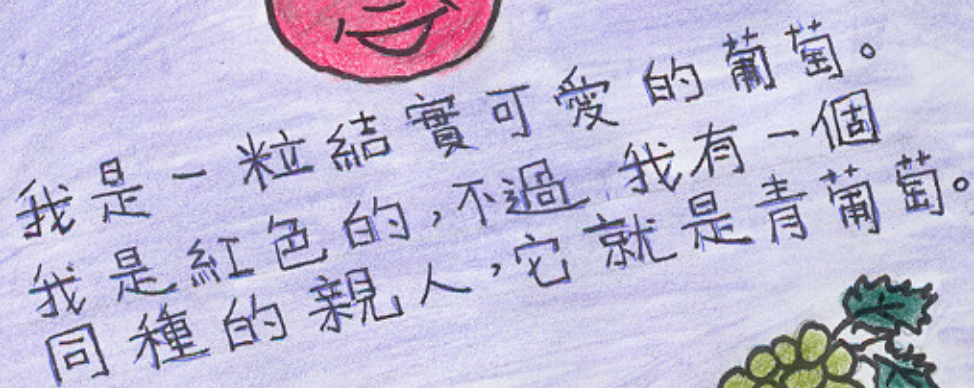 我是一粒結實可愛的葡萄。
我是紅色的,不過我有一個
同種的親人,它就是青葡萄。